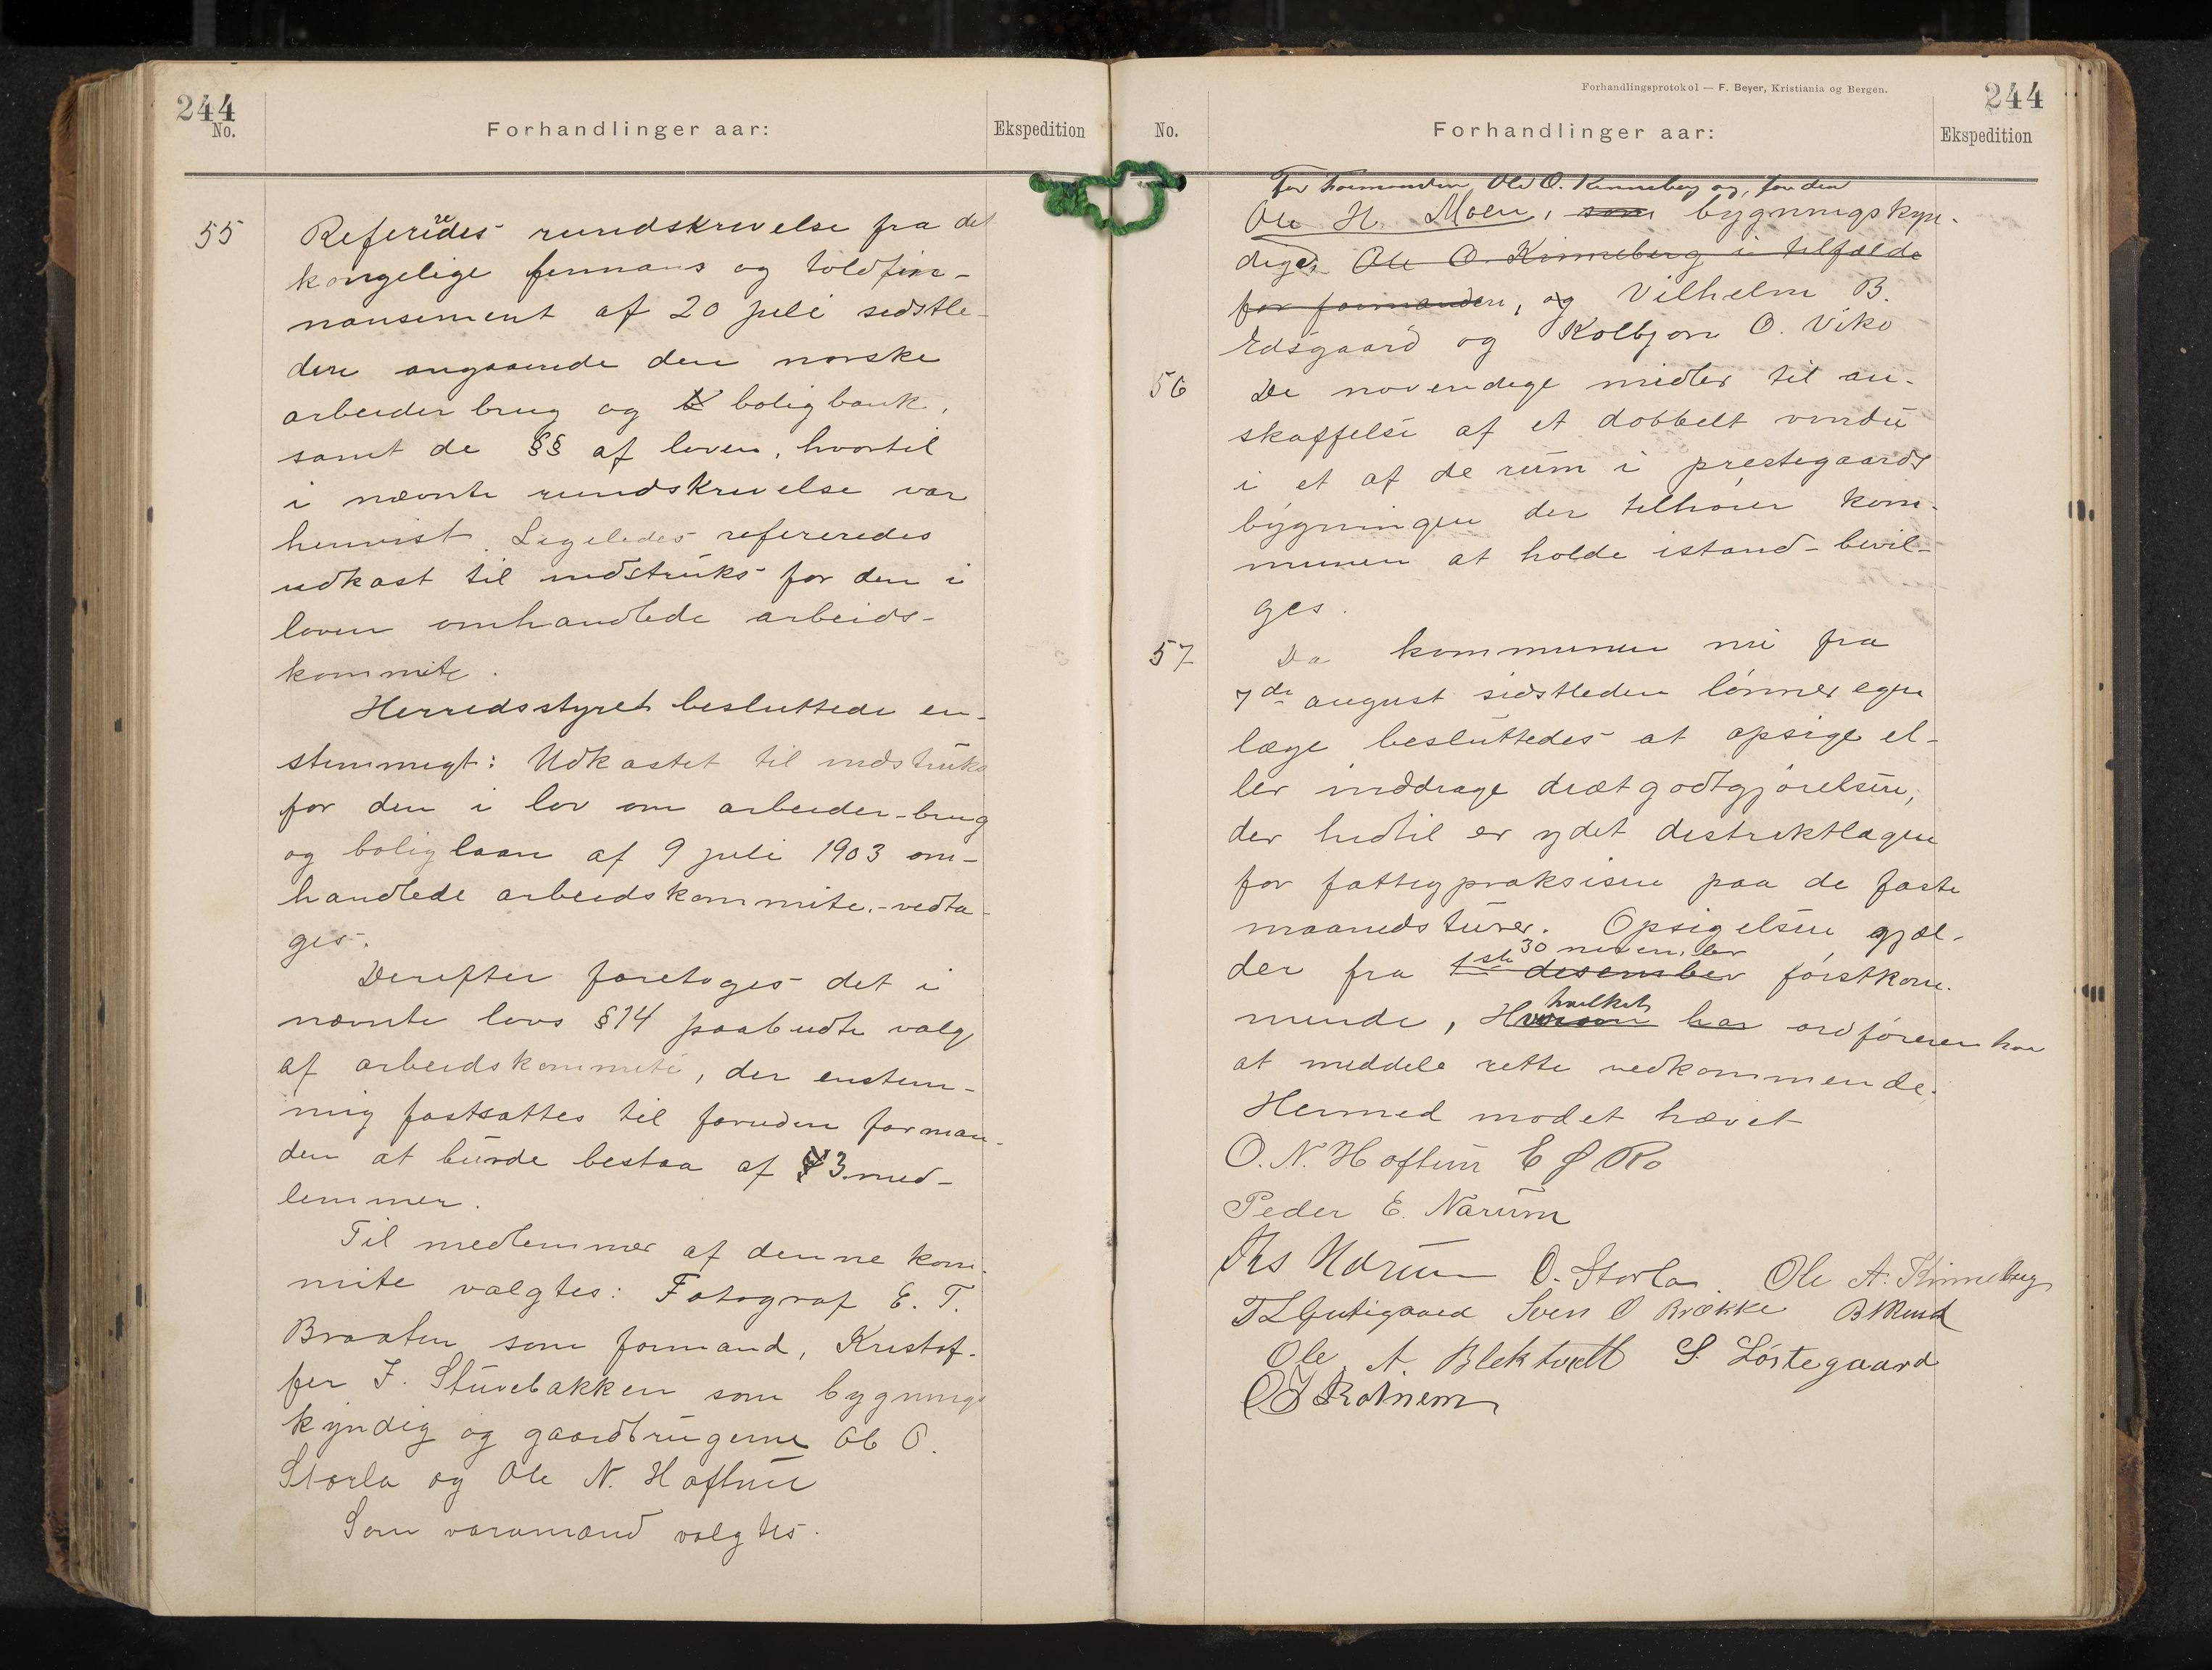 244
No.
Forhandlinger aar:
Ekspedition
55
Refereredes rundskrivelse fra det
kongelige finnans og toldfin-
nansement af 20 juli sidstle-
den angaaende den norske
arbeider brug og boligbank,
samt de §§ af loven, hvortil
i nævnte rundskrivelse var
henvist. Ligeledes refereredes
udkast til indstruks for den i
loven omhandlede arbeids-
kommite.
Herredsstyret besluttede en-
stemmigt: Udkastet til indstruks
for den i lov om arbeider-brug
og boliglaan af 9 juli 1903 om-
handlede arbeidskommite.-vedta-
ges.
Derefter foretoges det i
nævnte lovs §14 paabudte valg
af arbeidskommite, der enstem-
mig fastsattes til foruden forman-
den at burde bestaa af 3 med-
lemmer.
Til medlemmer af denne kom-
mite valgtes: Fotograf E. T.
Braaten som formand, Kristof-
fer J. Stuvebakken som bygnings
kyndig og gaardbrugerne Ole O.
Storla og Ole N. Hoftun
Som varamænd valgtes.
Forhandlingsprotokol — F. Beyer, Kristiania og Bergen.
244
No.
Forhandlinger aar:
Ekspedition
For Formanden Ole O. Kinneberg og, for den
Ole H. Moen, som bygningskyn-
dige, Ole O. Kinneberg i tilfælde
for formanden, og Vilhelm B.
Edsgaard og Kolbjørn O. Viko
56
De nøvendige midler til an-
skaffelse af et dobbelt vindu
i et af de rum i prestegaards
bygningen der tilhører kom-
munen at holde istand-bevil-
ges.
57
Da kommunen nu fra
7de august sidstleden lønner egen
læge besluttedes at opsige el-
ler inddrage diætgodtgjørelsen,
der hidtil er ydet distriktlægen
for fattigpraksisen paa de faste
maanedsturer. Opsigelsen gjæl-
30 november
der fra 1ste desember førstkom-
hvilket
mende, Hvorom har ordføreren har
at meddele rette vedkommende.
Hermed mødet hævet
O. N. Hoftun E J Ro
Peder E. Narum
Ths Narum O. Storla Ole A. Kinneberg
T L Gutigaard Sven O Brække B N Rud
Ole A. Blektvedt S. Løstegaard
O J Rotnem